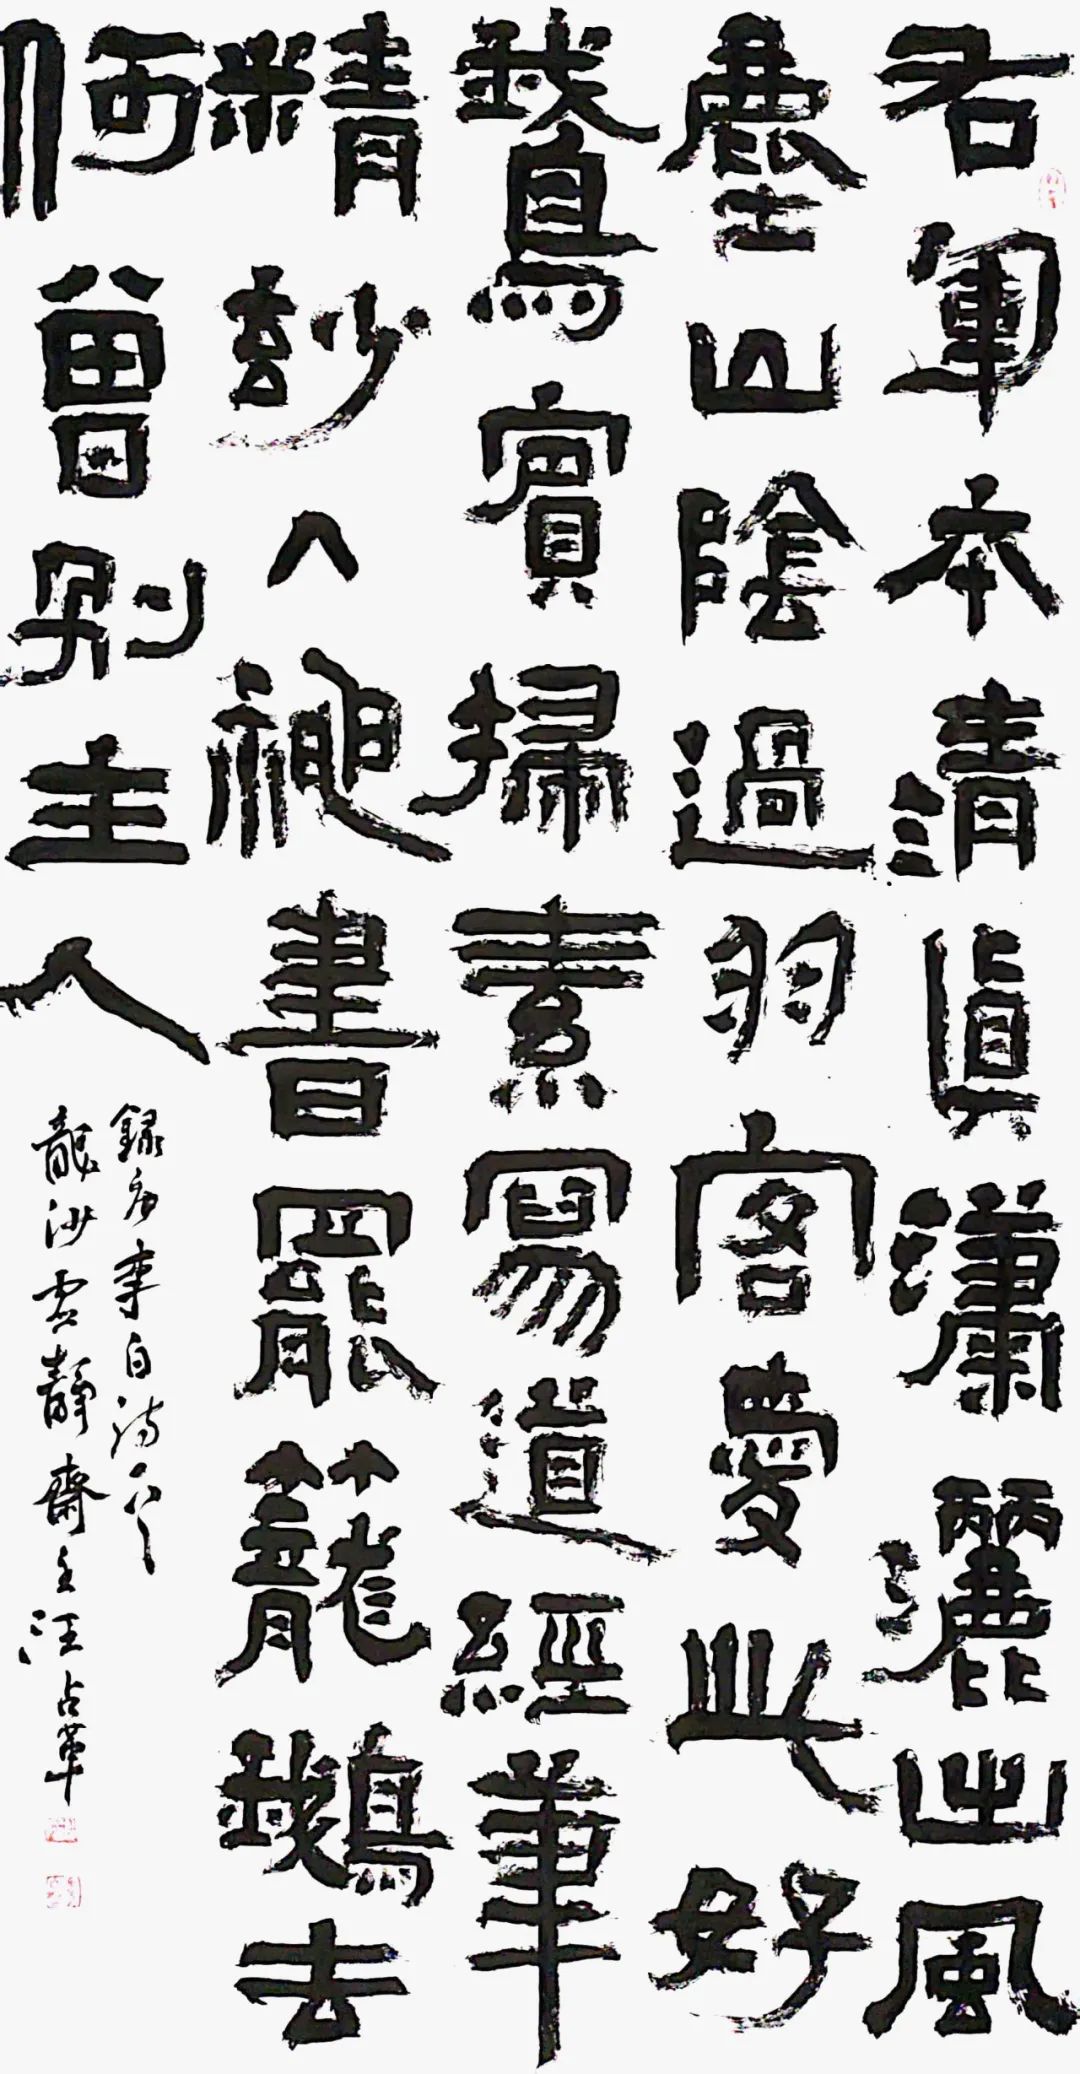 右軍本清真瀟灑出風
塵山陰過羽客愛此好
鵞賓掃素寫道經筆
精玅入神書罷籠鵝去
何曾別主人
錄李白詩
龍沙靜齋主汪占革